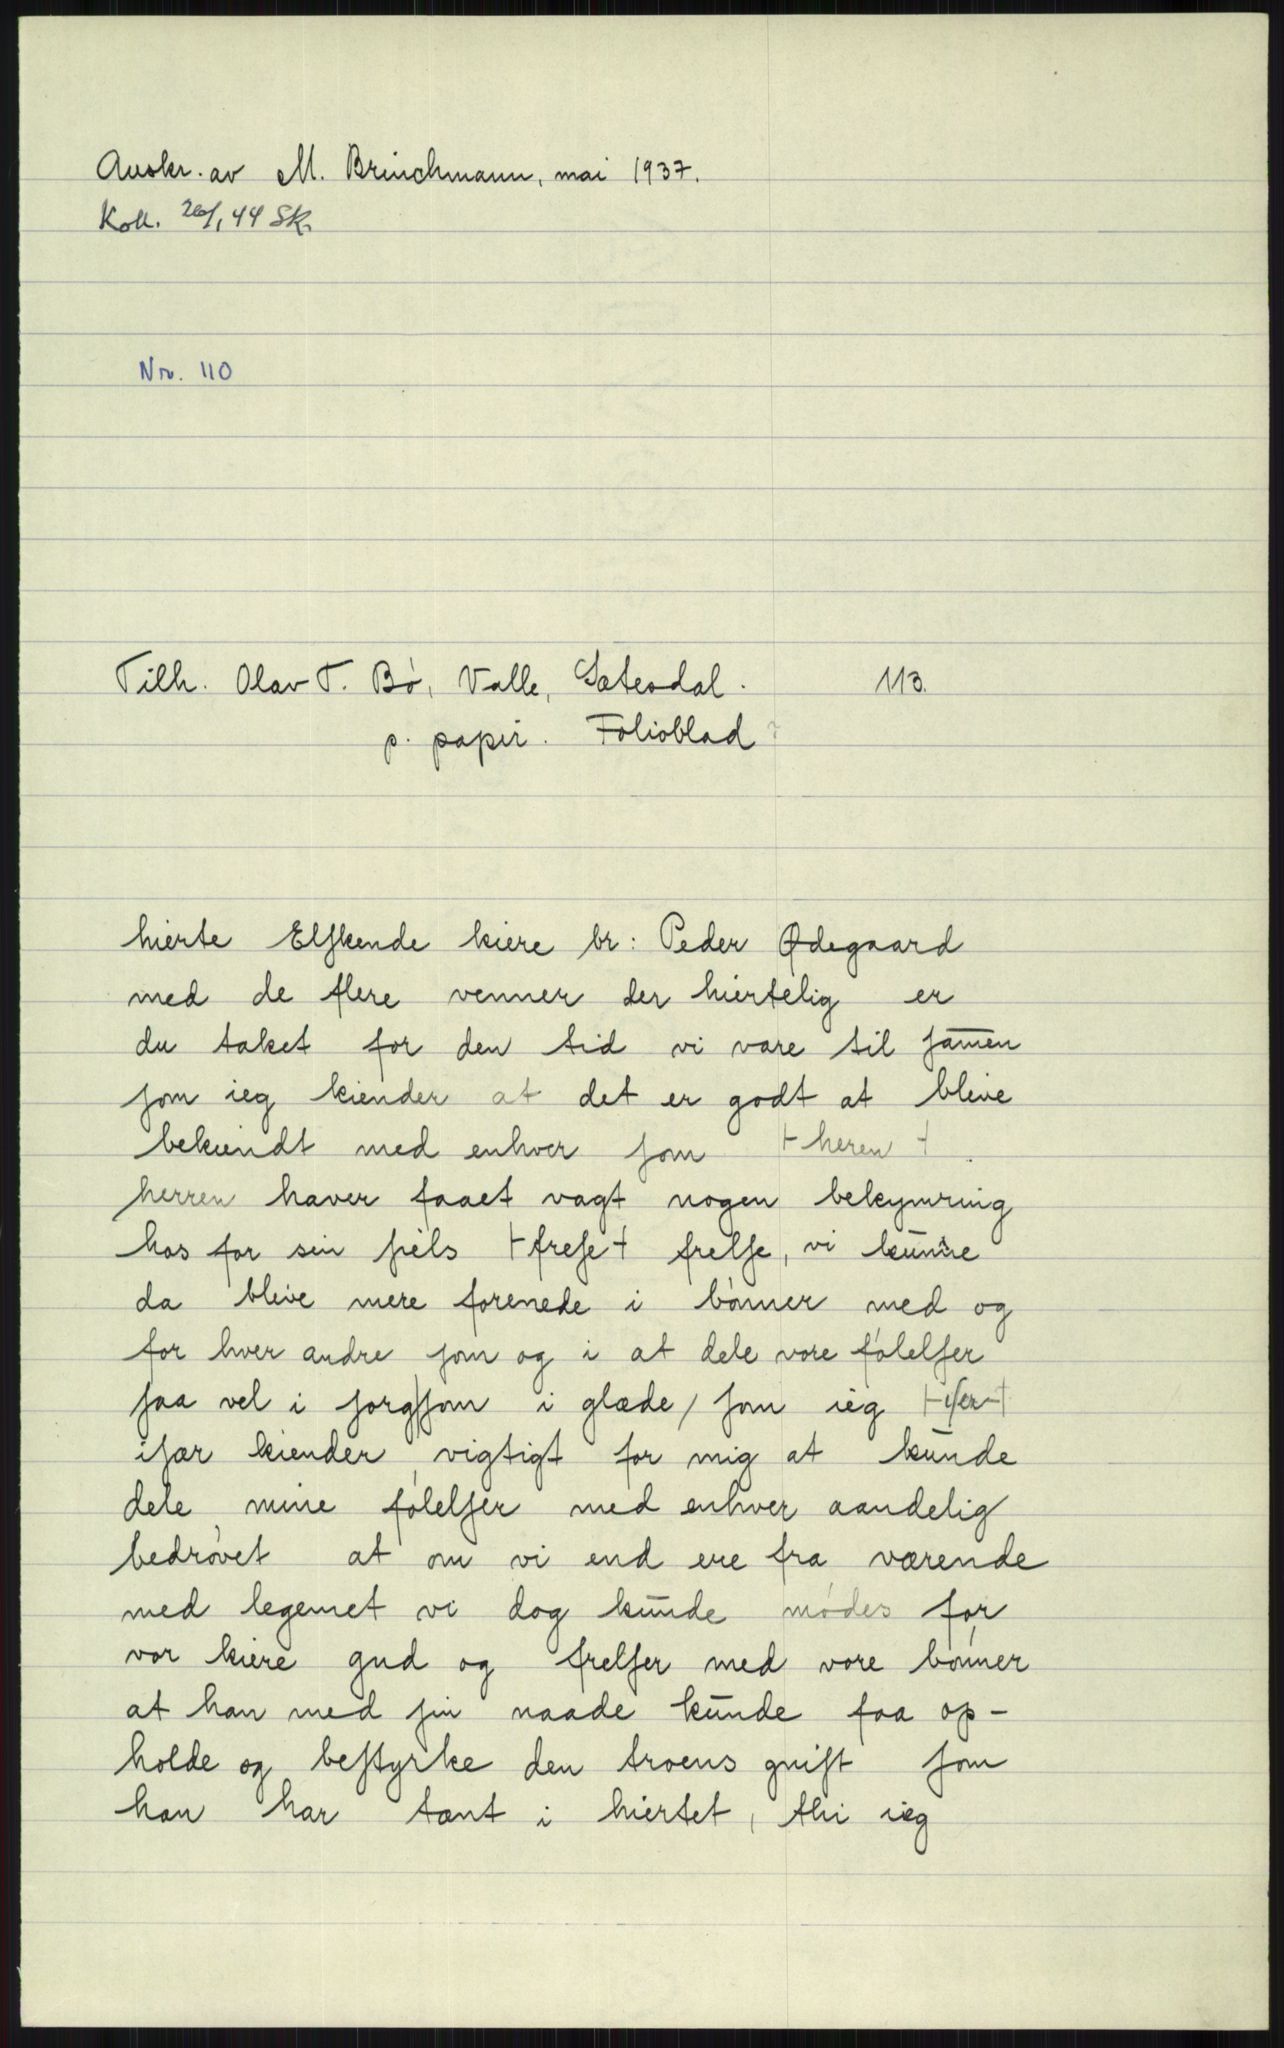 Avskr. av M. Brinchmann, mai 1937.
Koll. 26/1 44 Sk.
Nr. 110
Tilh. Olav T. Bø, Valle, Setesdal. 113.
p. papir. Folioblad
hierte Elſkende kiere br: Peder Ødegaard
med de flere venner der hiertelig er
du taket for den tid vi vare til ſam̅en
ſom ieg kiender at det er godt at blive
bekiendt med enhver ſom ⊢ heren ⊣
herren haver faaet vagt nogen bekymring
hos for sin ſiels ⊢ freſe ⊣ frelſe, vi kunne
da blive mere forenede i bønner med og
for hver andre ſom og i at dele vore følelſer
ſaa vel i ſorg/ſom i glæde/ ſom ieg ⊢ iſer ⊣
iſær kiender vigtigt for mig at kunde
dele mine følelſer med enhver aandelig
bedrøvet at om vi end ere fra værende
med legemet vi dog kunde mødes for
vor kiere gud og frelſer med vore bønner
at han med ſin naade kunde faa op-
holde og beſtyrke den troens gniſt ſom
han har tænt i hiertet, thi ieg